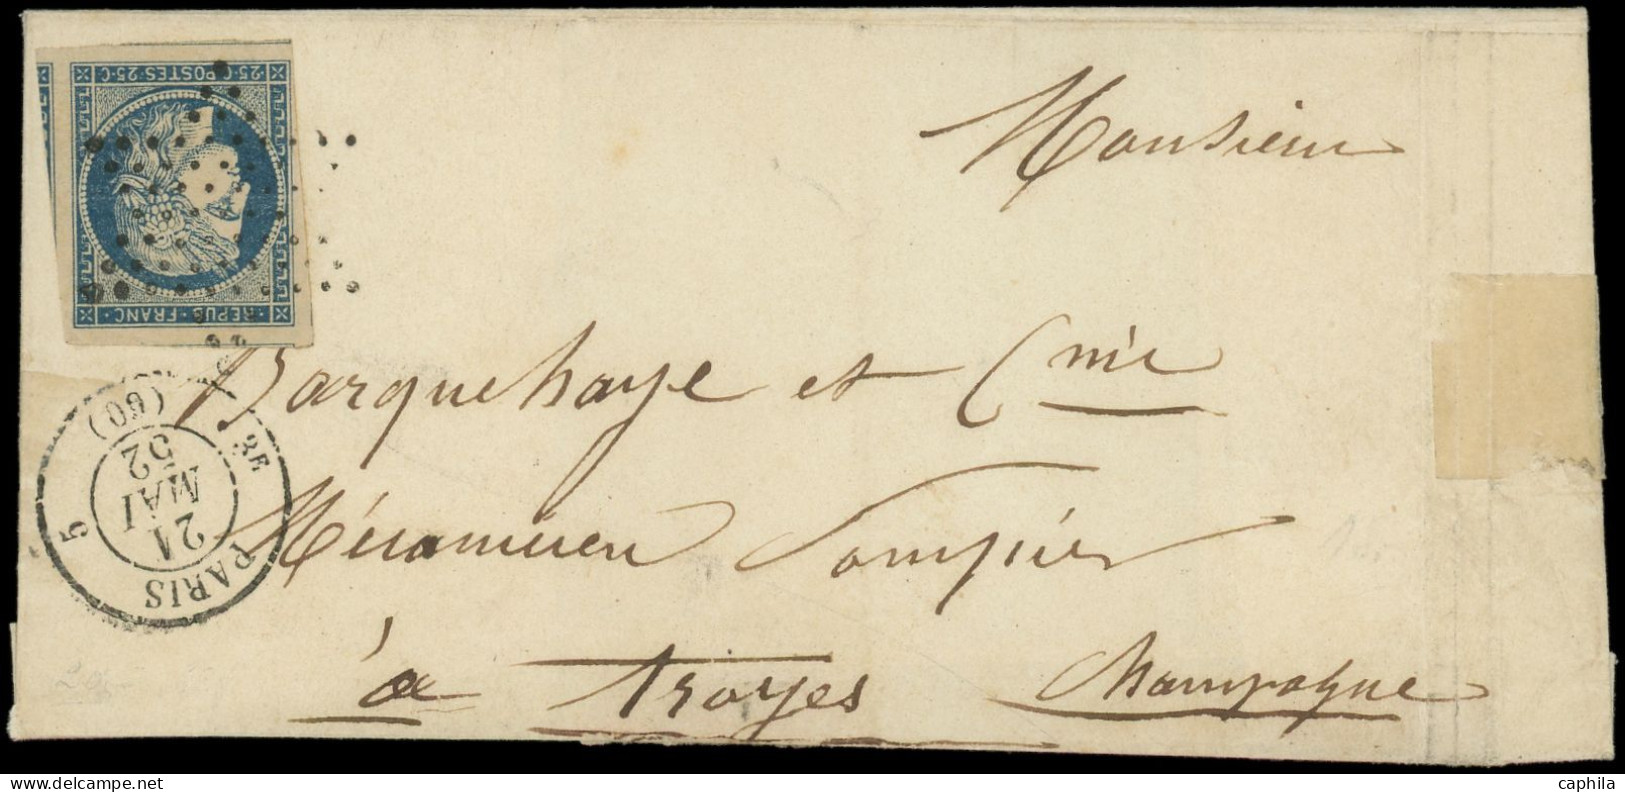 25·C·POSTES·25·C
·REPUB·FRANC·
Monsieur
Barquehaye et Cnie
Mécanicien Pompier
à Troyes Champagne
PARIS
3E
(60)
5
21
MAI
52
caphila